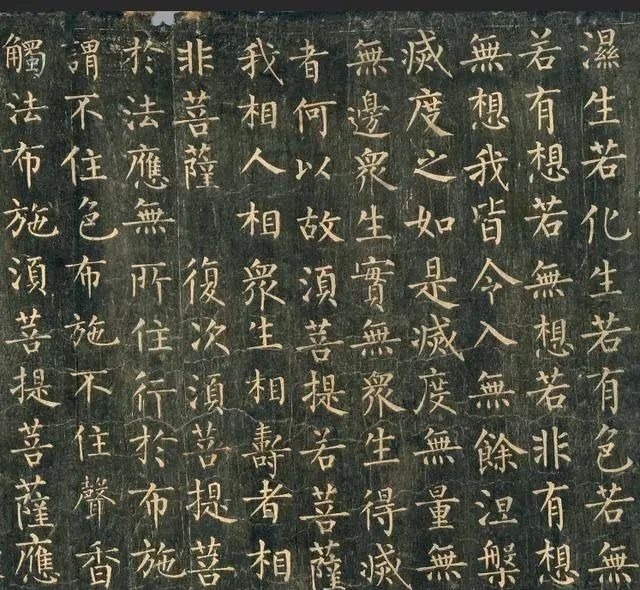 濕生若化生若有色若無
若有想若無想若非有想
無想我皆令入無餘涅槃
滅度之如是滅度無量無
無邊衆生實無衆生得滅
者何以故須菩提若菩薩
我相人相衆生相壽者相
非菩薩 復次須菩提菩
於法應無所住行於布施
謂不住色布施不住聲香
觸法布施須菩提菩薩應